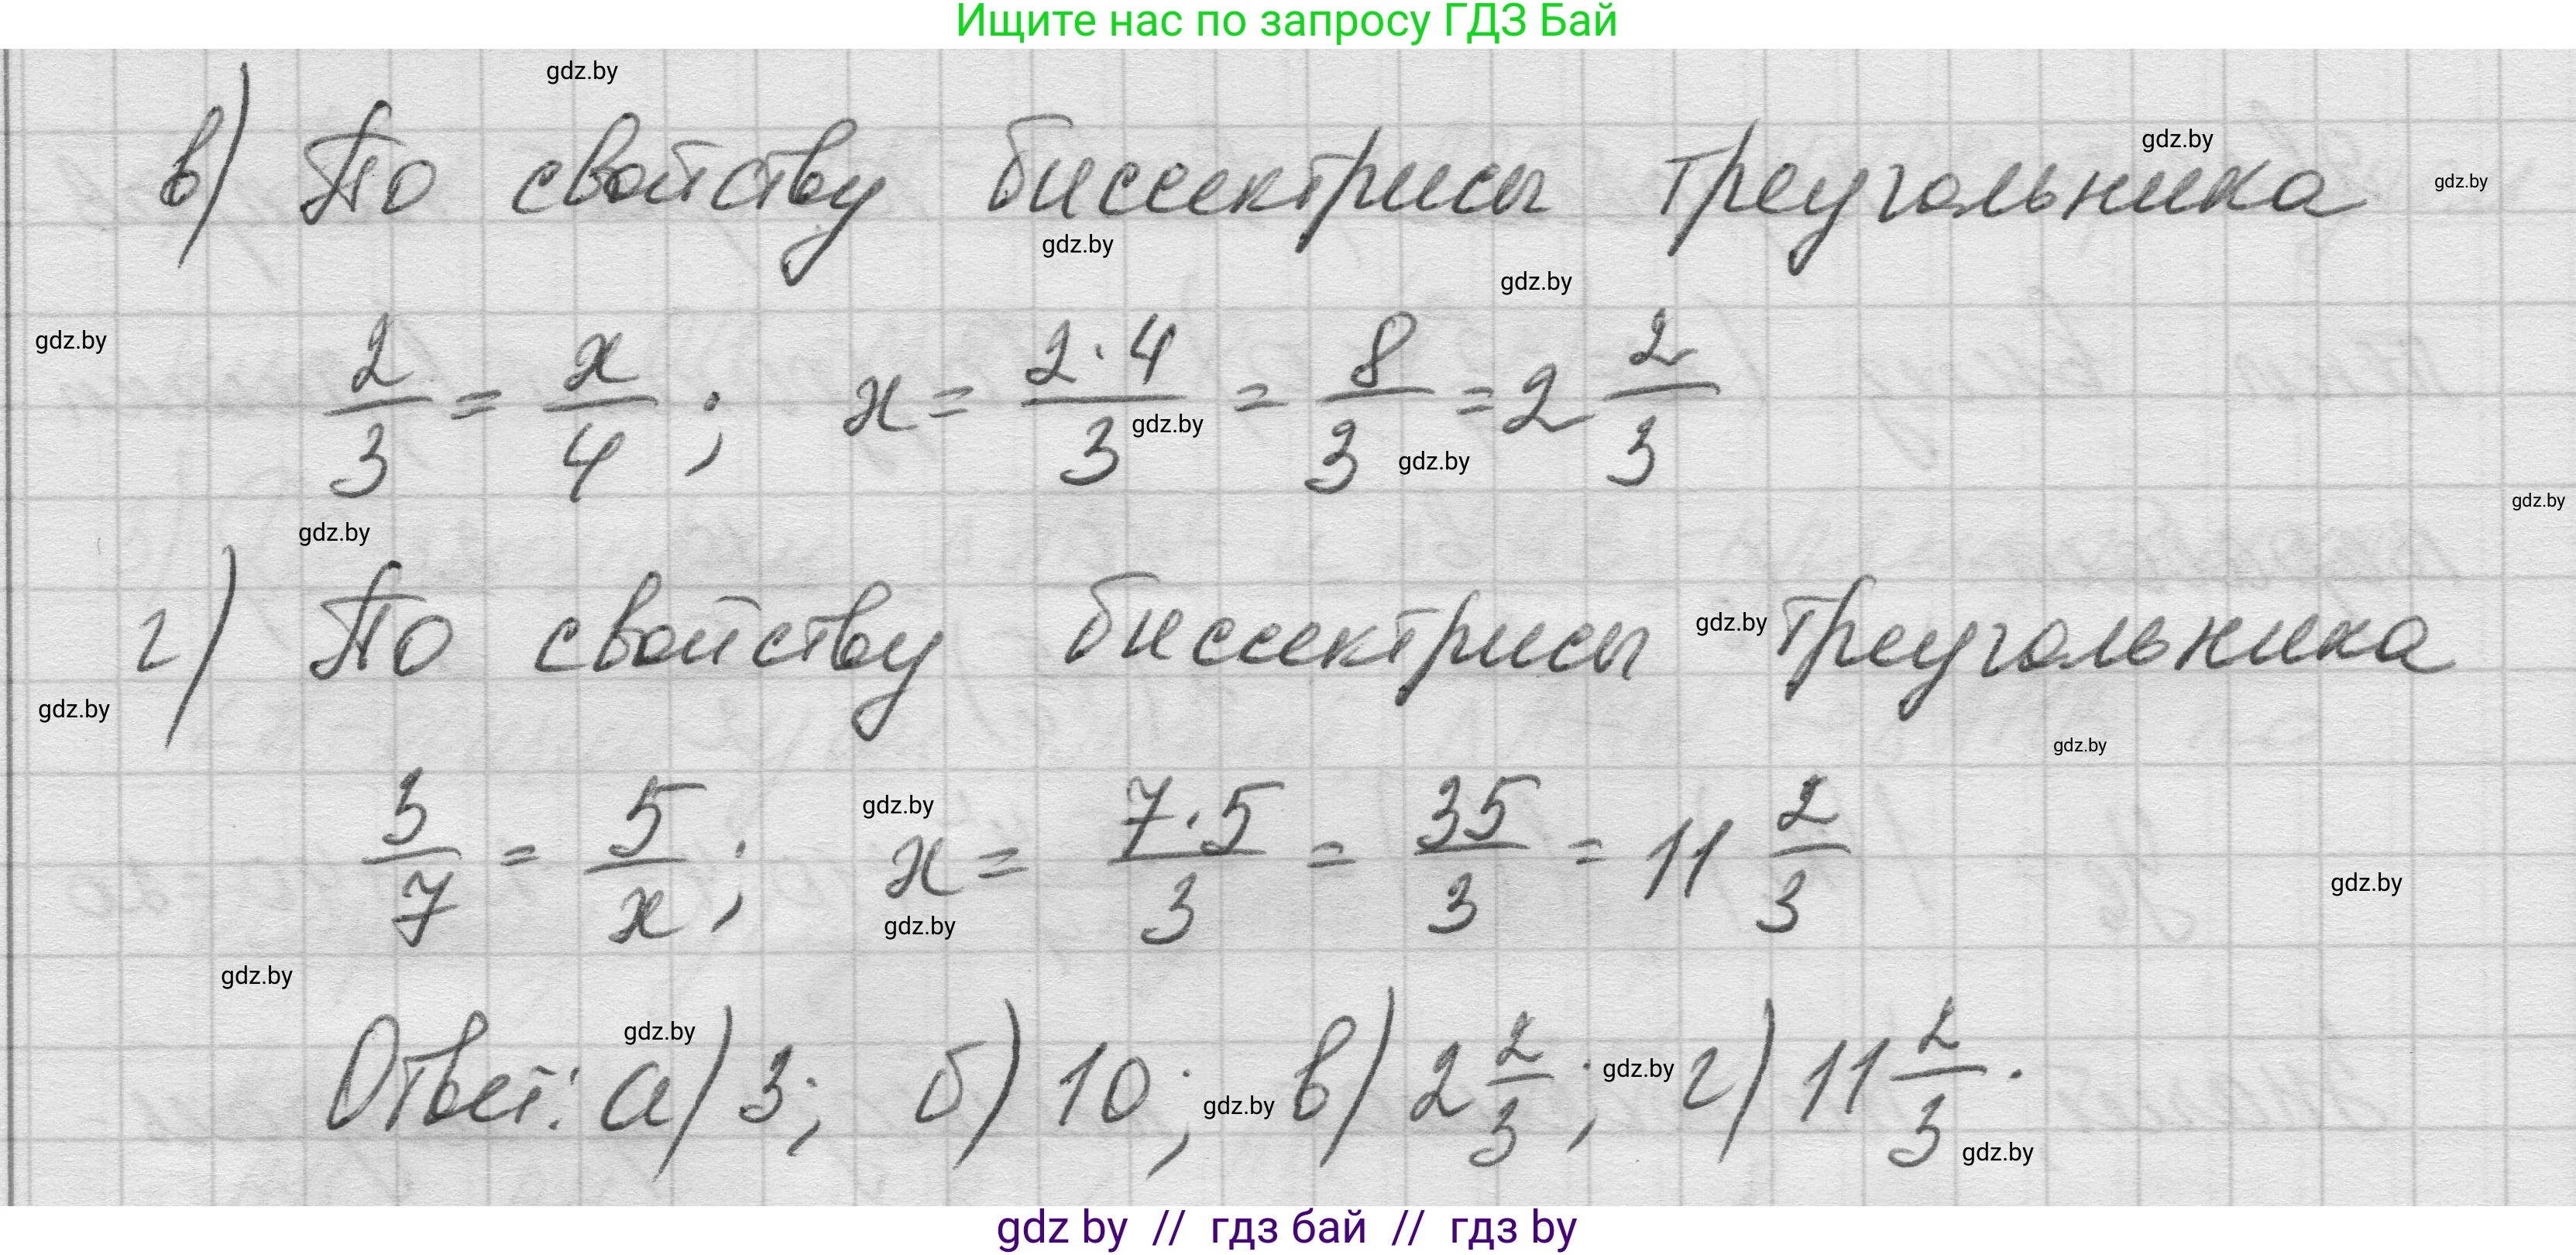 Ищите нас по запросу ГДЗ Бай
gdz.by
в) По свойству биссектрисы треугольника
gdz.by
gdz.by
gdz.by
gdz.by
gdz.by
2/3 = x/4 ; x = 2·4/3 = 8/3 = 2 2/3
gdz.by
gdz.by
gdz.by
gdz.by
г) По свойству биссектрисы треугольника
gdz.by
gdz.by
gdz.by
3/7 = 5/x ; x = 7·5/3 = 35/3 = 11 2/3
gdz.by
gdz.by
gdz.by
gdz.by
Ответ: а) 3; б) 10; в) 2 2/3 ; г) 11 2/3 .
gdz.by
gdz.by
gdz.by
gdz.by
gdz by // гдз бай // гдз by